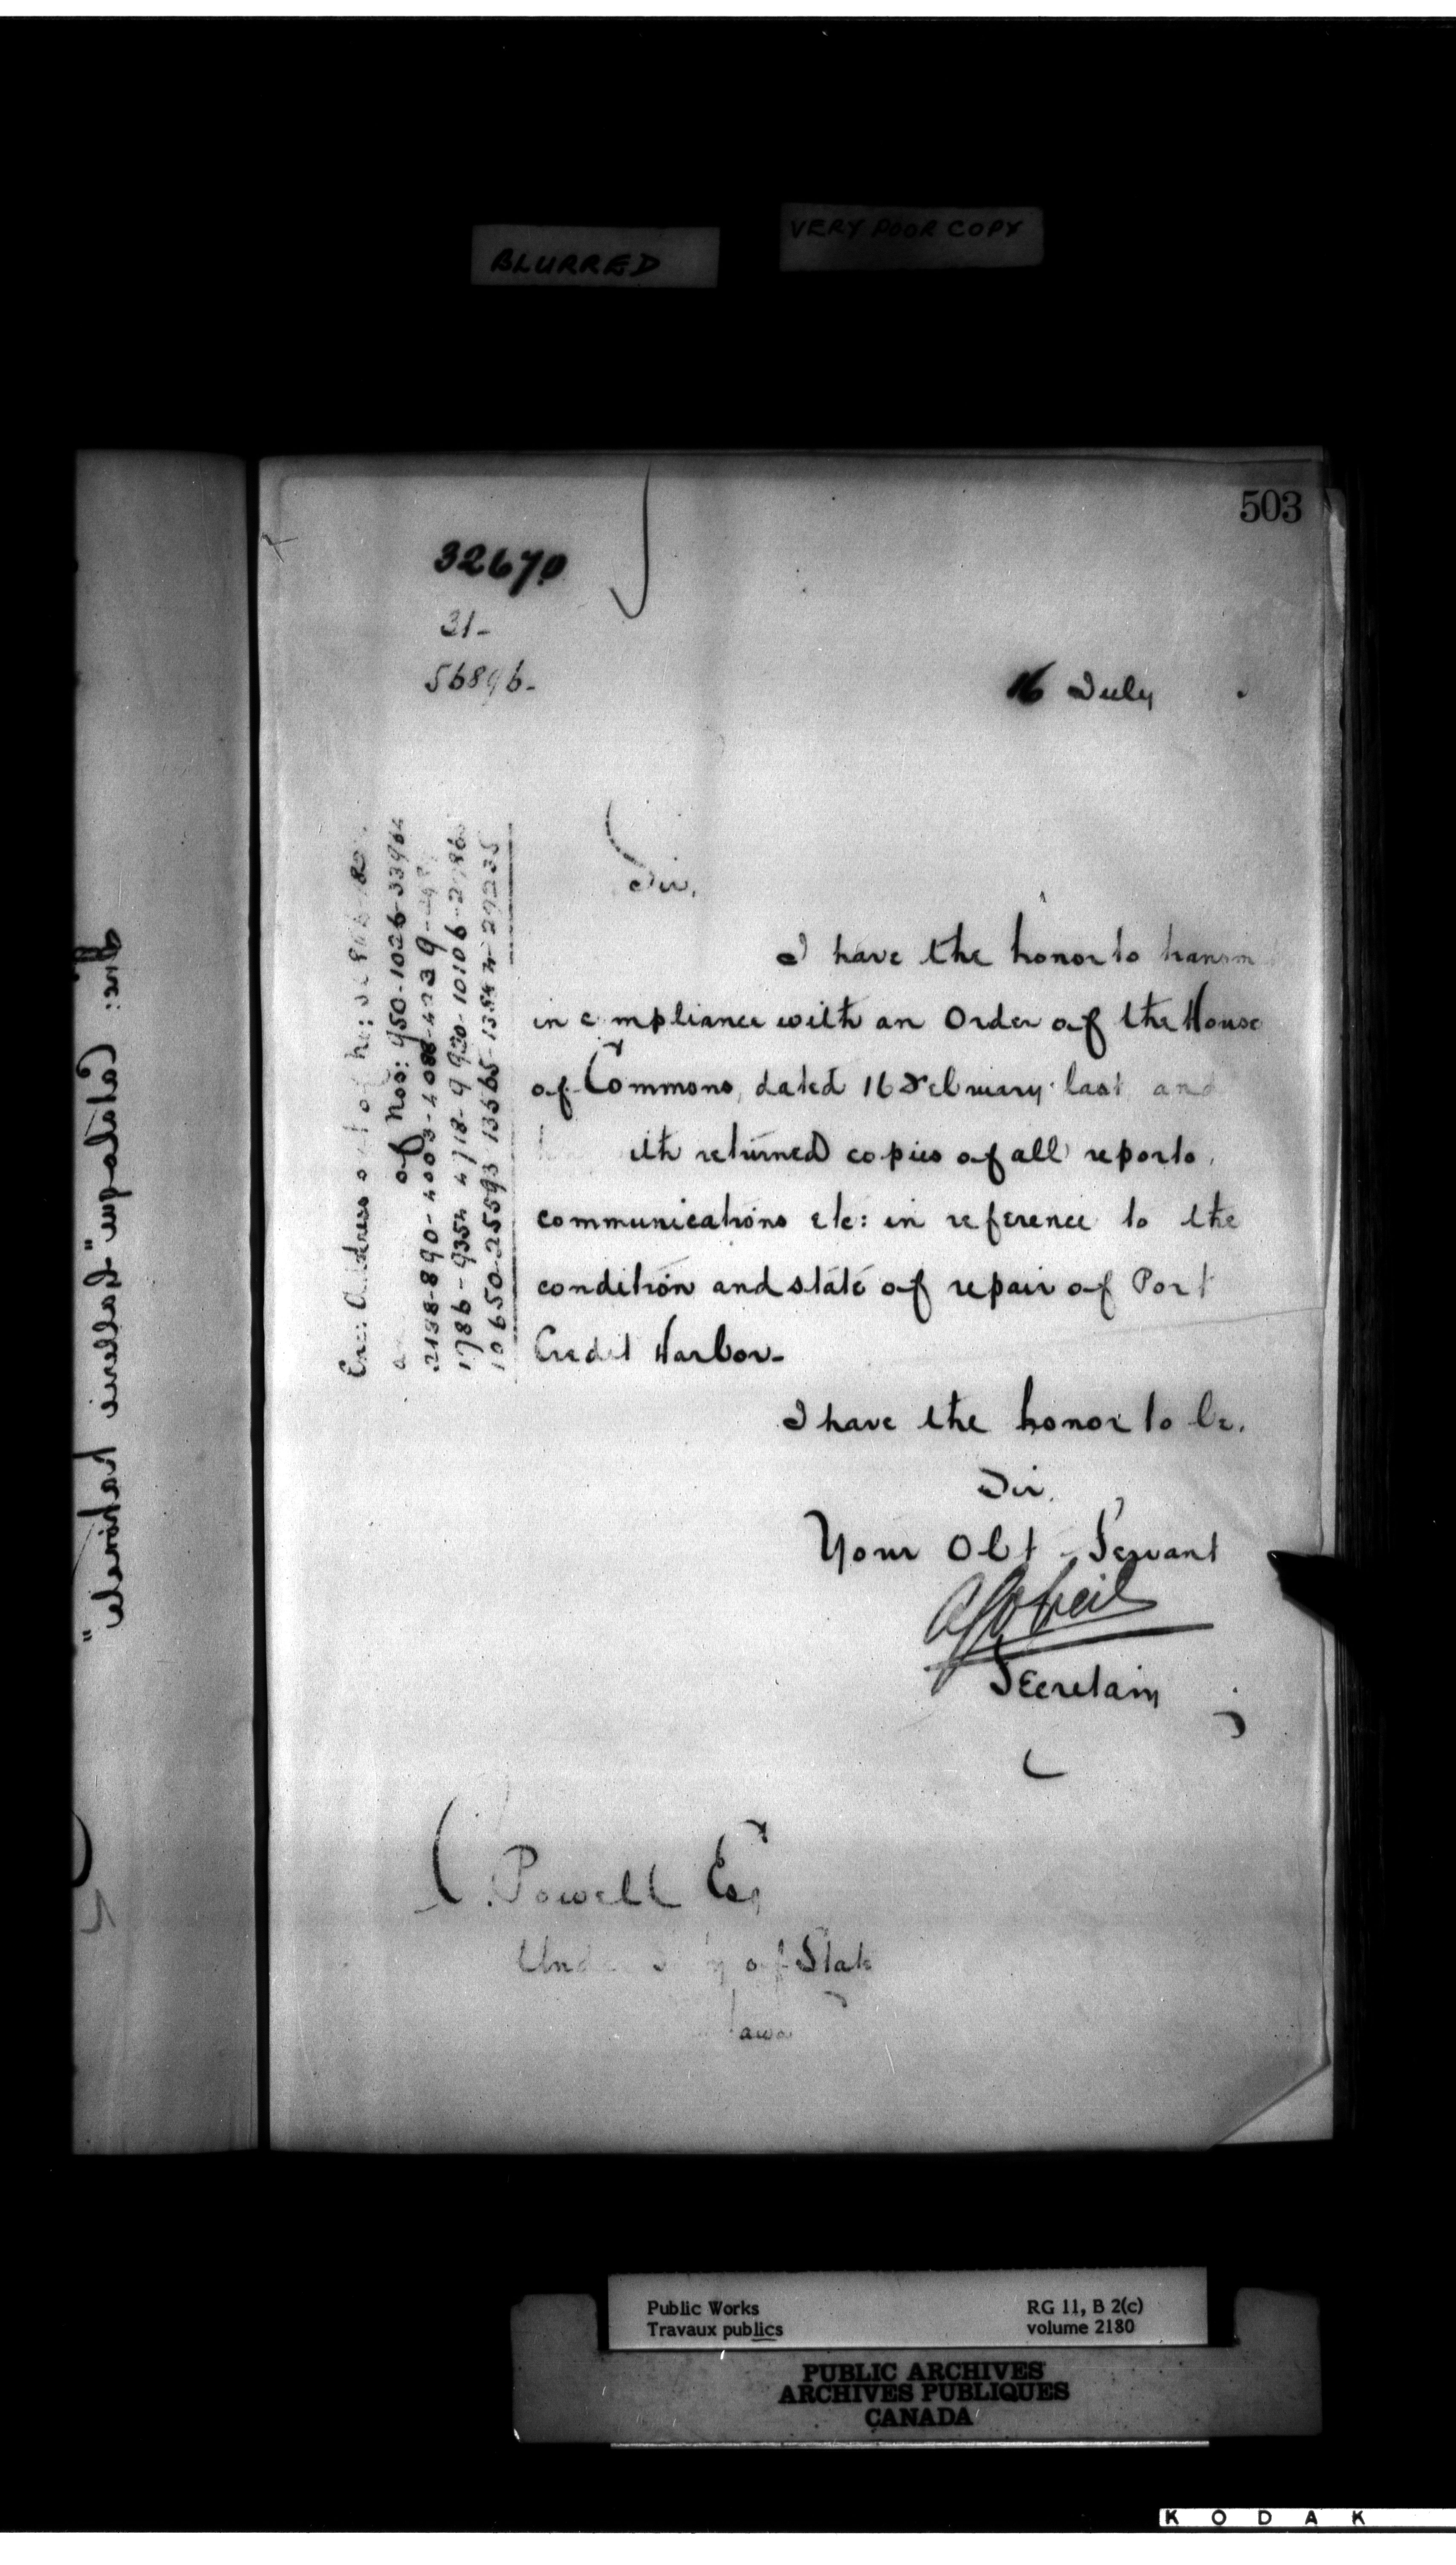 BLURRED
VERY POOR COPY
503
32670
31-
56896-
16 July
Sir,
I have the honor to transm
in c mpliance with an Order of the House
of Commons, dated 16 February last and
ith returned copies of all reports,
communications etc: in reference to the
condition and state of repair of Port
Credit Harbor-
I have the honor to be,
Sir,
Your Obt Servant
Secretary
Powell Esq
Unde of State
of Nos: 950-1026-33964
2138-890-4003-4088-4239-
1786-9354 4718-9920-10106-2
10650-25593 13565-13544-27235
Enc: Catalogue "Gallerie Nationale"
Public Works
Travaux publics
RG 11, B 2(c)
volume 2180
PUBLIC ARCHIVES
ARCHIVES PUBLIQUES
CANADA
KODAK